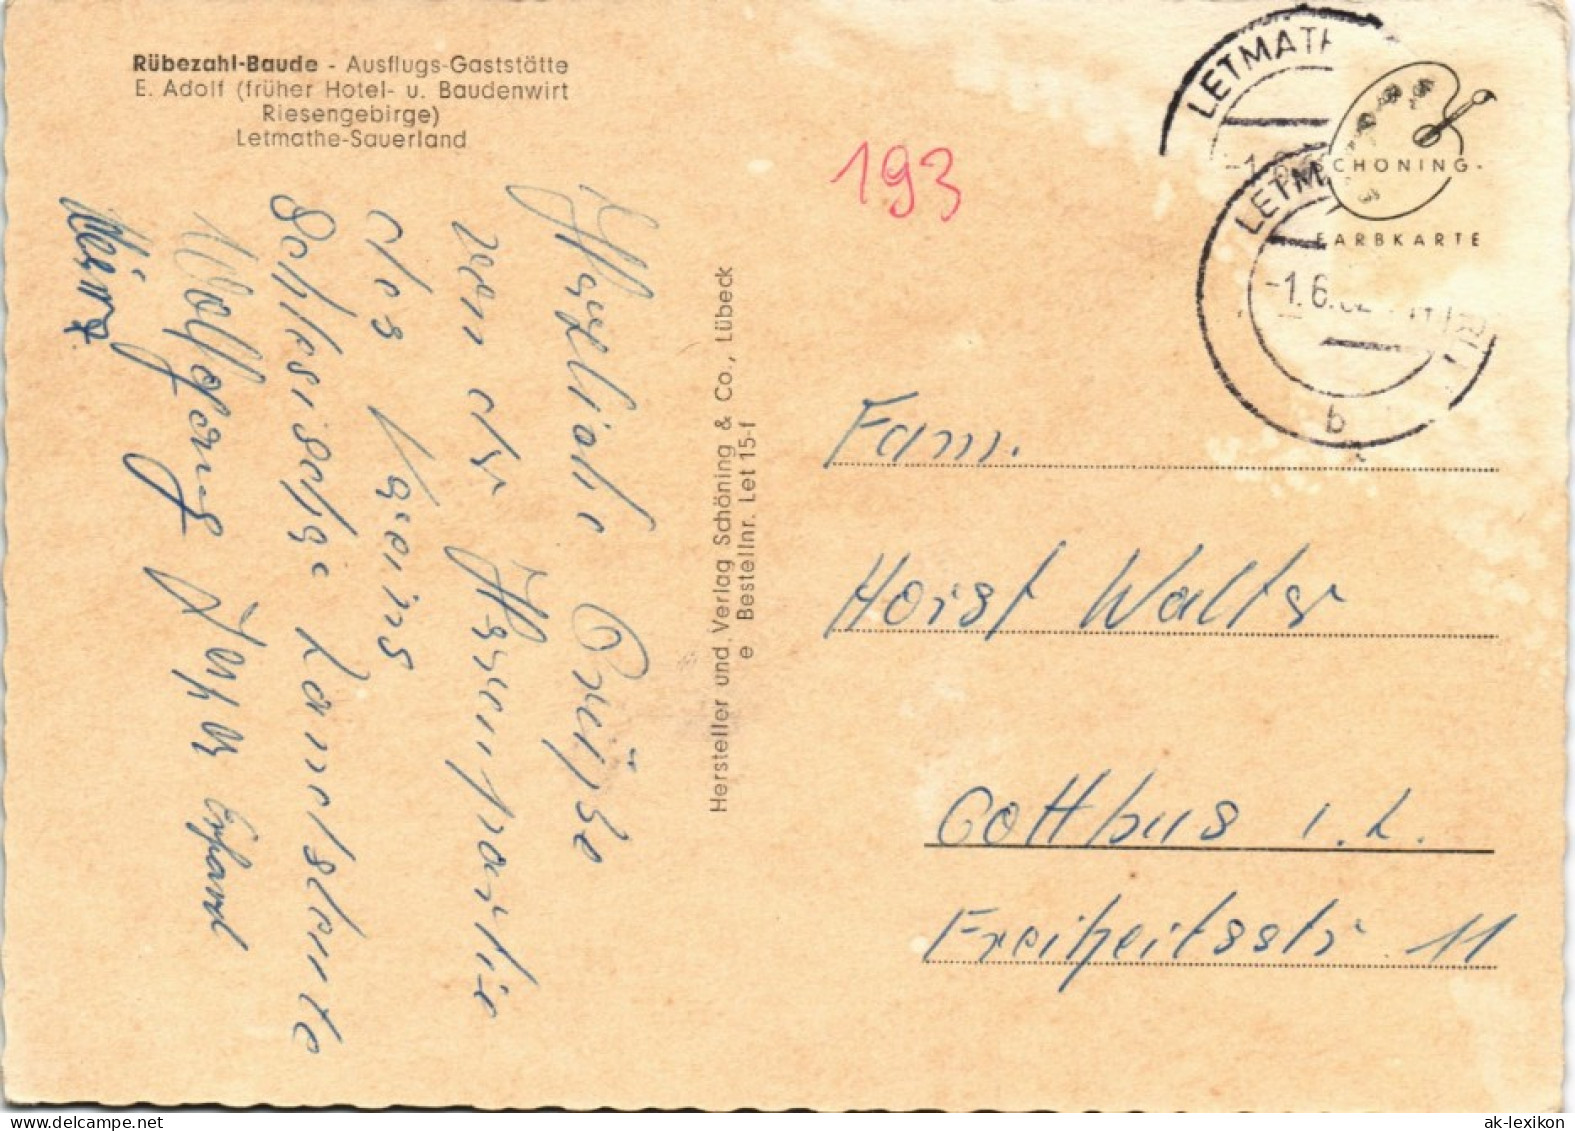 Rübezahl-Baude - Ausflugs-Gaststätte
E. Adolf (früher Hotel- u. Baudenwirt
Riesengebirge)
Letmathe-Sauerland
Herzliche Grüße
von der Herrenpartie
des Vereins
Schlesischer Landsleute
Wolfgang
Heinz
Erhard
Hersteller und Verlag Schöning & Co., Lübeck
e Bestellnr. Let 15-f
193
LETMATH
-1.6
SCHÖNING-
FARBKARTE
LETM
-1.6.62
b
Fam.
Horst Walter
Cottbus i. L.
Freiheitsstr. 11
ak-ansichtskarten.de
ak-lexikon